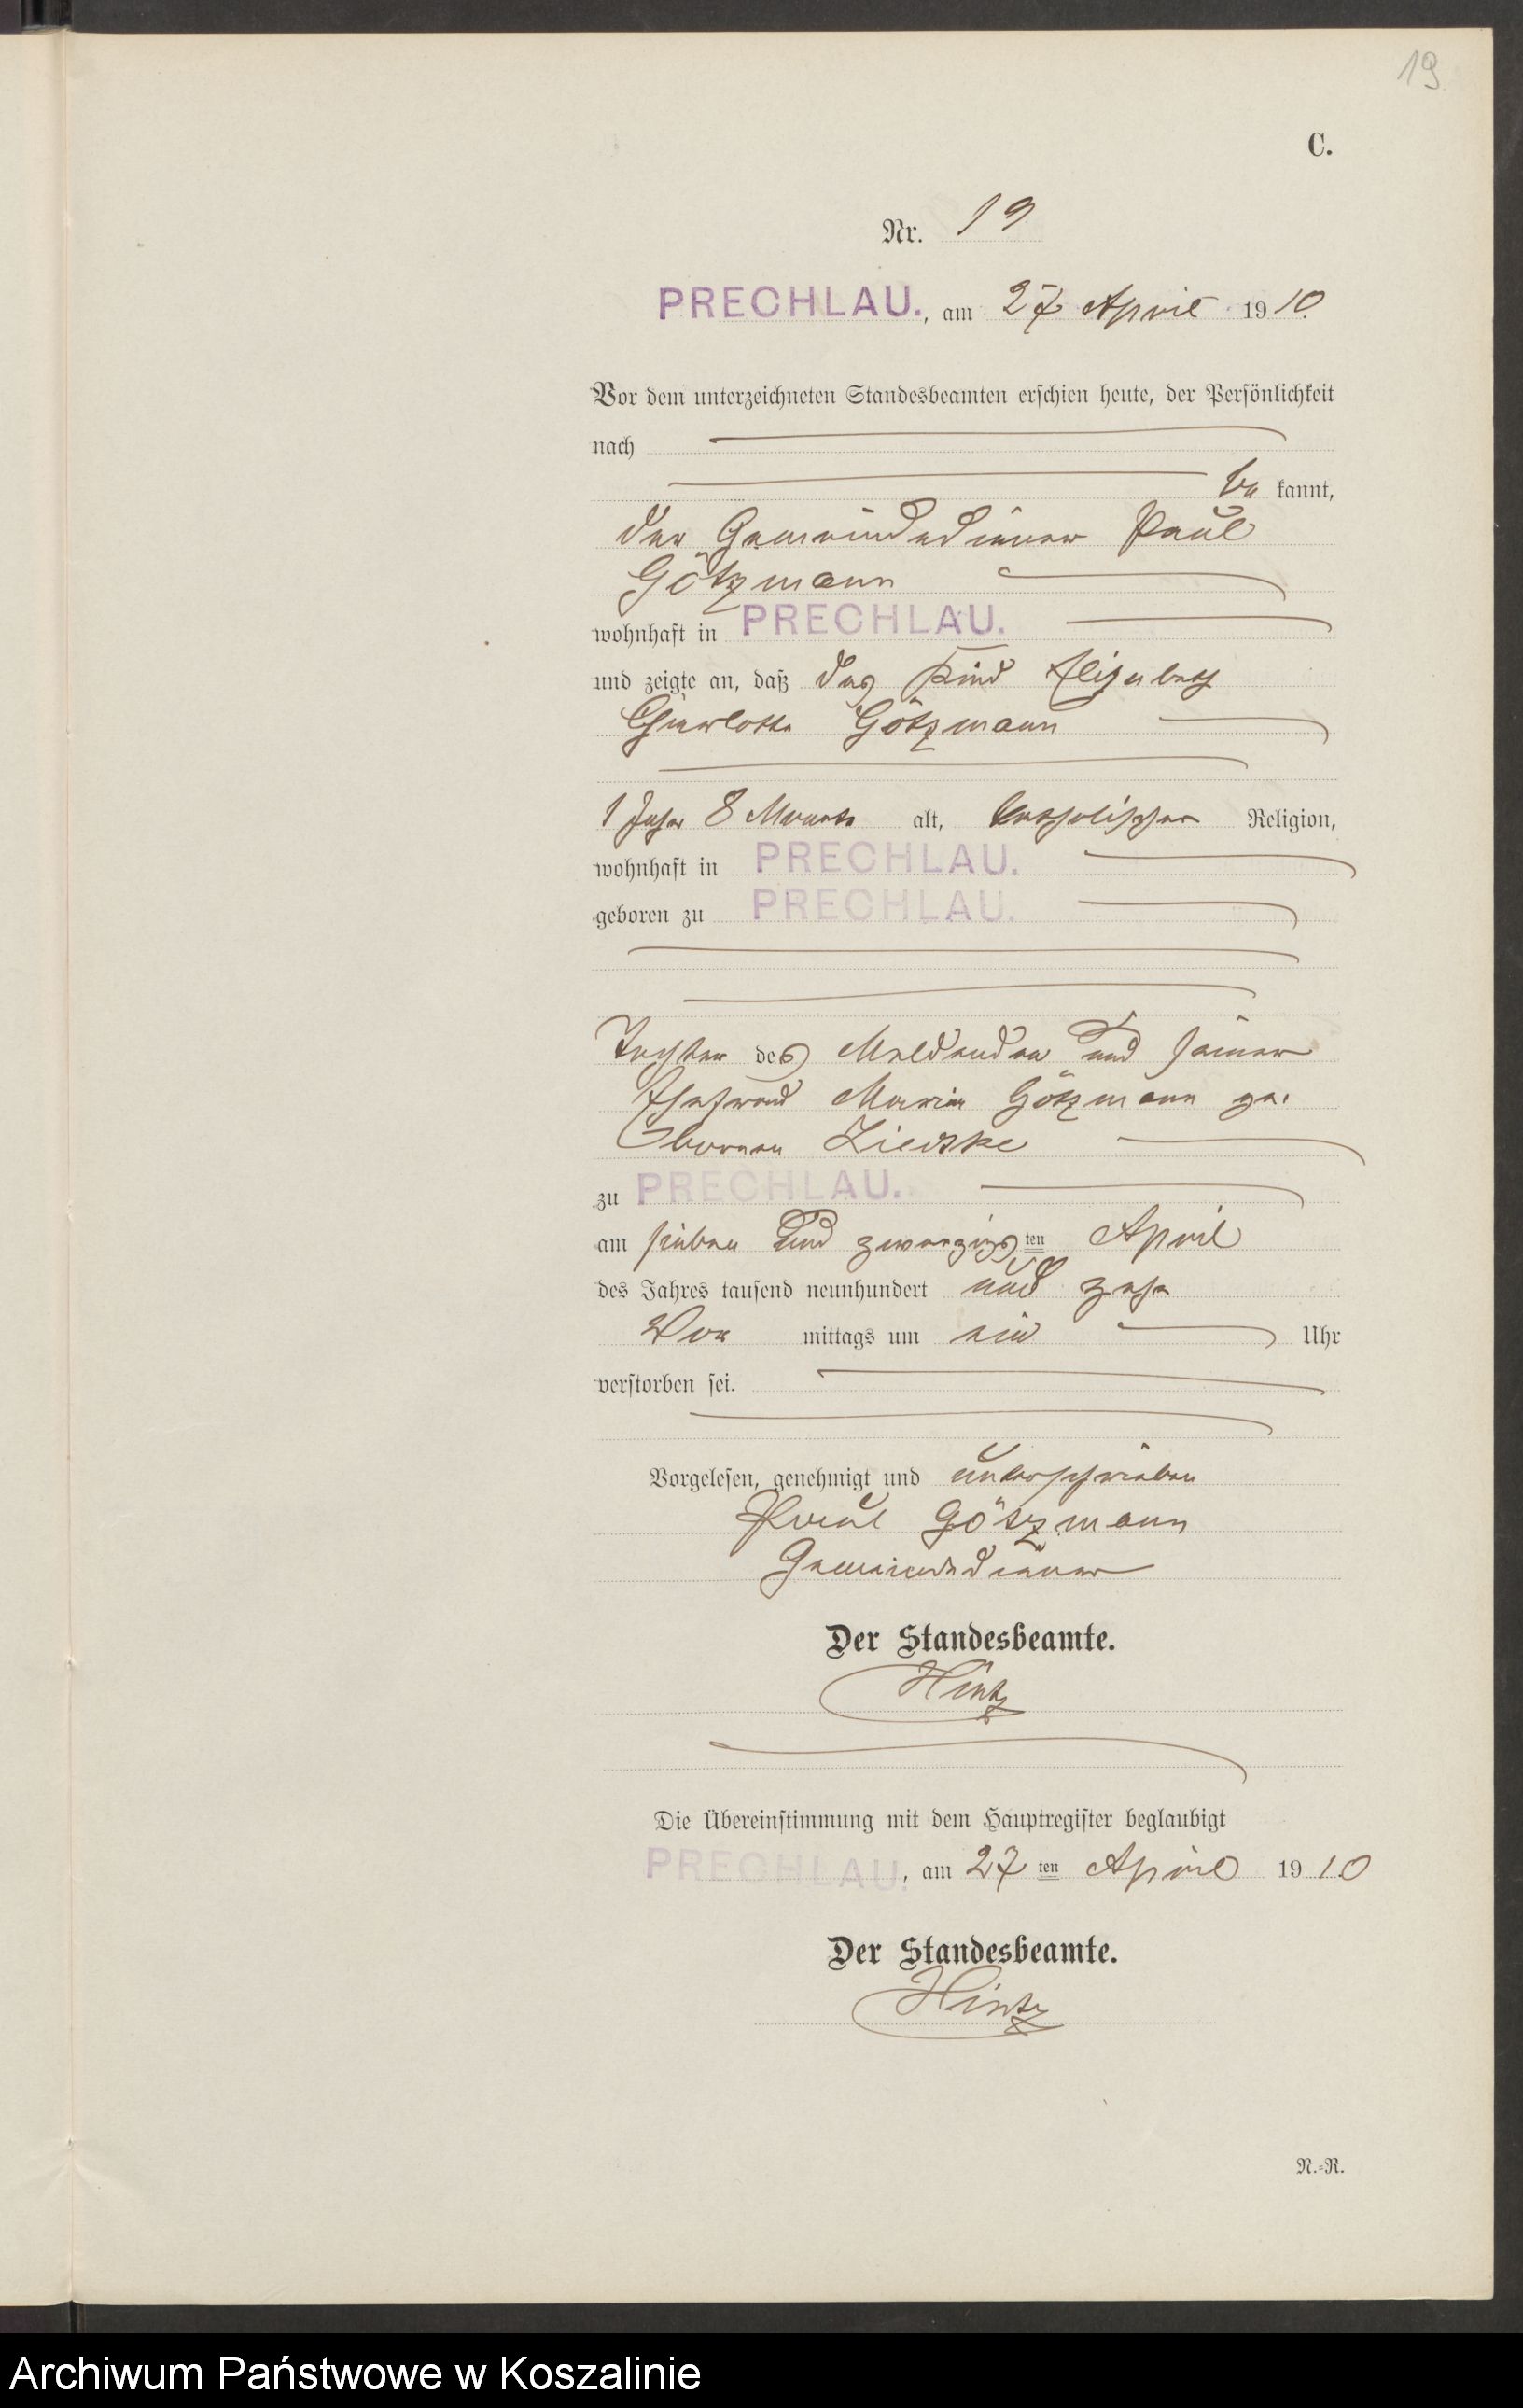 19
C.
Nr. 19
PRECHLAU., am 27 April 1910.
Vor dem unterzeichneten Standesbeamten erschien heute, der Persönlichkeit
nach
be kannt,
der Gemeindediener Paul
Götzmann
wohnhaft in PRECHLAU.
und zeigte an, daß das Kind Elisabeth
Charlotte Götzmann
1 Jahr 8 Monate alt, katholischer Religion,
wohnhaft in PRECHLAU.
geboren zu PRECHLAU.
Tochter des Meldenden und seiner
Ehefrau Maria Götzmann ge.
bornen
zu PRECHLAU.
am sieben und zwanzigsten April
des Jahres tausend neunhundert und zehn
Vor mittags um ein Uhr
verstorben sei.
Vorgelesen, genehmigt und unterschrieben
Paul Götzmann
Gemeindediener
Der Standesbeamte.
Hintz
Die Übereinstimmung mit dem Hauptregister beglaubigt
PRECHLAU., am 27 ten April 1910
Der Standesbeamte.
Hintz
N.=R.
Archiwum Państwowe w Koszalinie